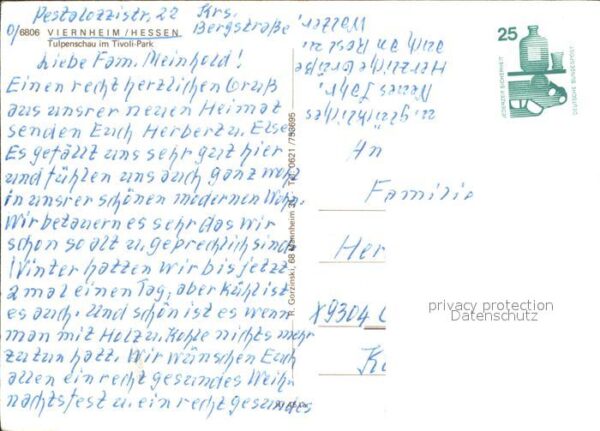 Pestalozzistr, 22 Krs.
o/6806 VIERNHEIM/HESSEN Bergstraße
Tulpenschau im Tivoli-Park
Liebe Fam. Meinhold!
Einen recht herzlichen Gruß
aus unsrer neuen Heimat
senden Euch Herbert u. Else
Es gefällt uns sehr gut hier
und fühlen uns auch ganz wohl
in unsrer schönen modernen Wohn.
Wir betauern es sehr das wir
schon so alt u. geprechlich sind
Winter hatten wir bis jetzt
2 mal einen Tag, aber kühl ist
es auch. Und schön ist es wenn
man mit Holz u. Kohle nichts mehr
zu tun hatt. Wir wünschen Euch
allen ein recht gesundes Weih-
nachtsfest u. ein recht gesundes
u. glückliches
Neues Jahr.
Herzliche Grüße
auch an Rest u.
Walter.
R. Gorzinski, 68 Mannheim Tel. 0621/753695
25
JEDERZEIT SICHERHEIT
DEUTSCHE BUNDESPOST
An
Familie
Her
X9304
privacy protection
Datenschutz